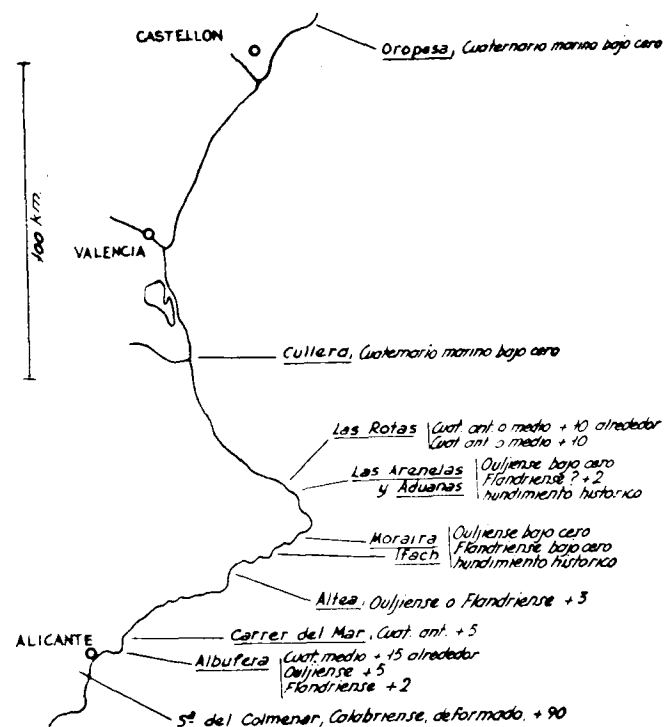 CASTELLON
Oropesa, Cuaternario marino bajo cero
100 km.
VALENCIA
Cullera, Cuaternario marino bajo cero
Las Rotas Cuat. ant. o medio + 10 alrededor
Cuat. ant. o medio + 10
Las Arenelas y Aduanas Ouljiense bajo cero
Flandriense ? + 2
hundimiento historico
Moraira Ifach Ouljiense bajo cero
Flandriense bajo cero
hundimiento historico
Altea, Ouljiense o Flandriense + 3
ALICANTE
Carrer del Mar, Cuat. ant. + 5
Albufera Cuat. medio + 15 alrededor
Ouljiense + 5
Flandriense + 2
Sª del Colmenar, Calabriense, deformado. + 90